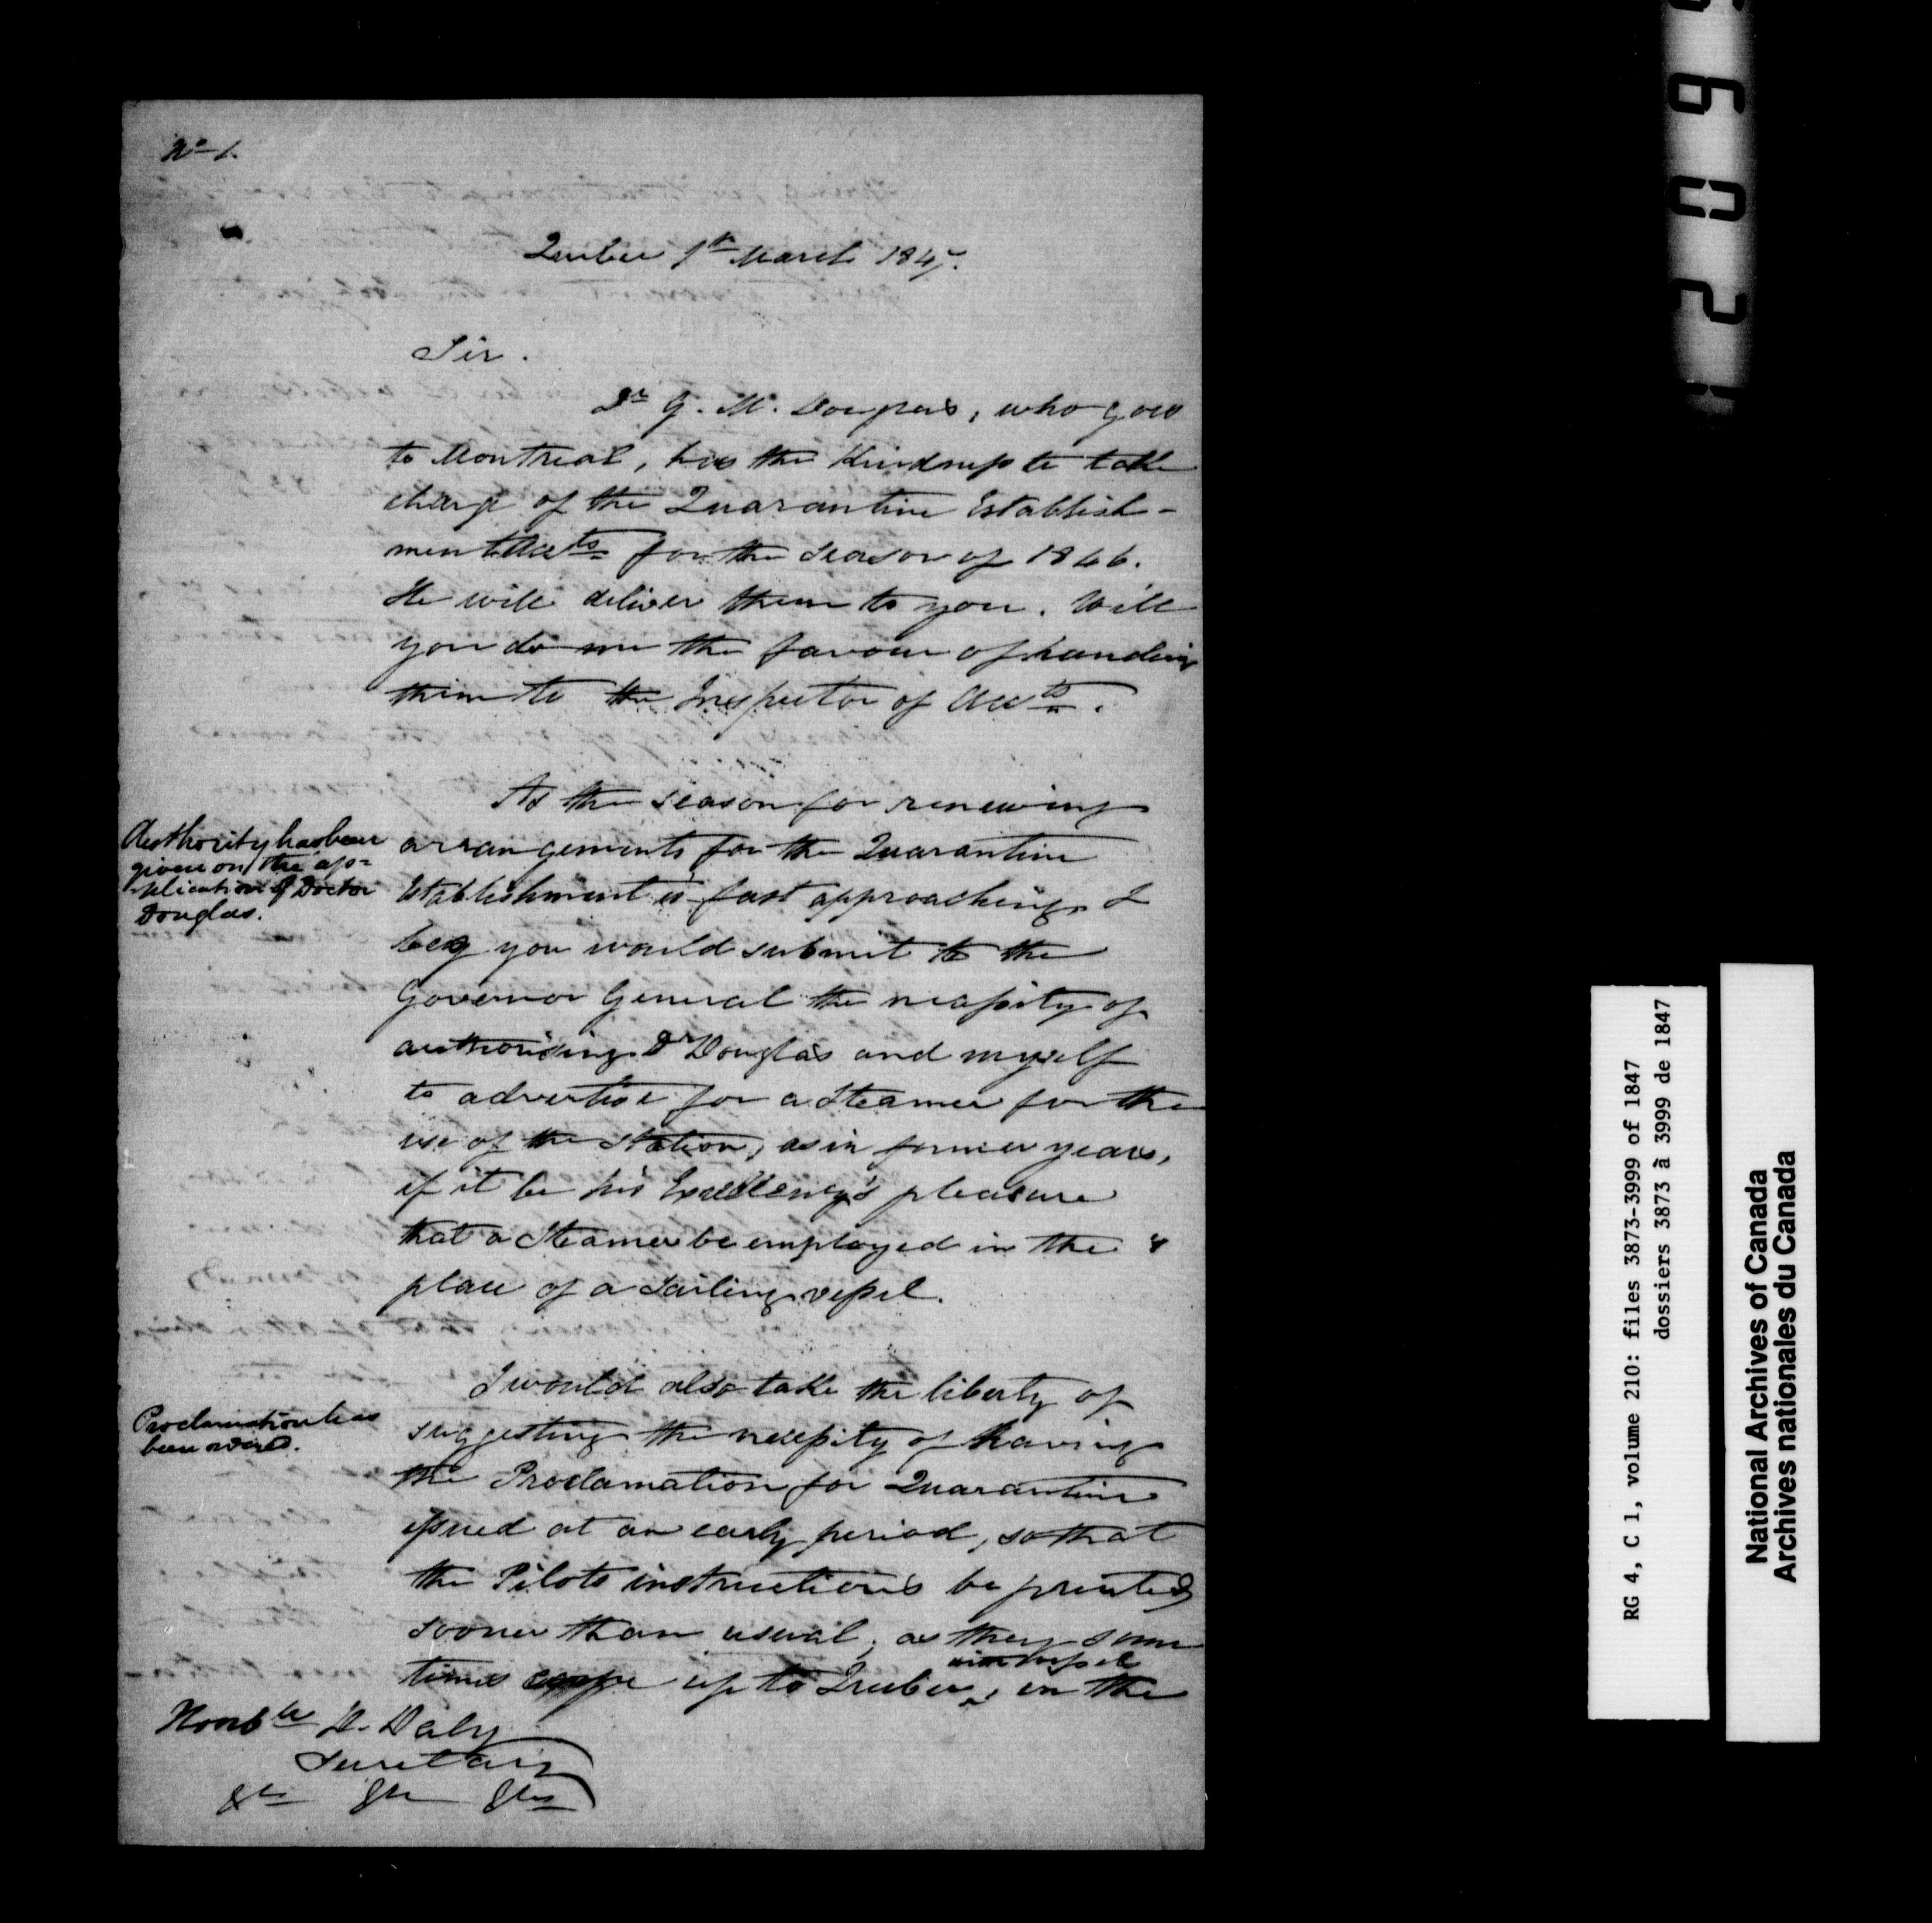 No 1.
Quebec 1st March 1847.
Sir.
Dr G. M. Douglas, who goes
to Montreal, has the Kindness to take
charge of the Quarantine Establish-
ment Accts for the season of 1846.
He will deliver them to you. Will
you do me the favour of handing
them to the Inspector of Accts.
As the season for renewing
arrangements for the Quarantine
Establishment is fast approaching I
beg you would submit to the
Governor General the necessity of
authorising Dr Douglas and myself
to advertise for a Steamer for the
use of the Station, as in former years,
if it be his Excellency's pleasure
that a Steamer be employed in the
place of a Sailing vessel.
Authority has been
given on the ap=
plication of Doctor
Douglas.
I would also take the liberty of
suggesting the necessity of having
the Proclamation for Quarantine
issued at an early period, so that
the Pilots instructions be printed
sooner than usual, as they some
times come up to Quebec, in the
Proclamation has
been ordered.
Honble D. Daly
Secretary
&c &c &c
6 0 2
RG 4, C 1, volume 210: files 3873-3999 of 1847
dossiers 3873 à 3999 de 1847
National Archives of Canada
Archives nationales du Canada